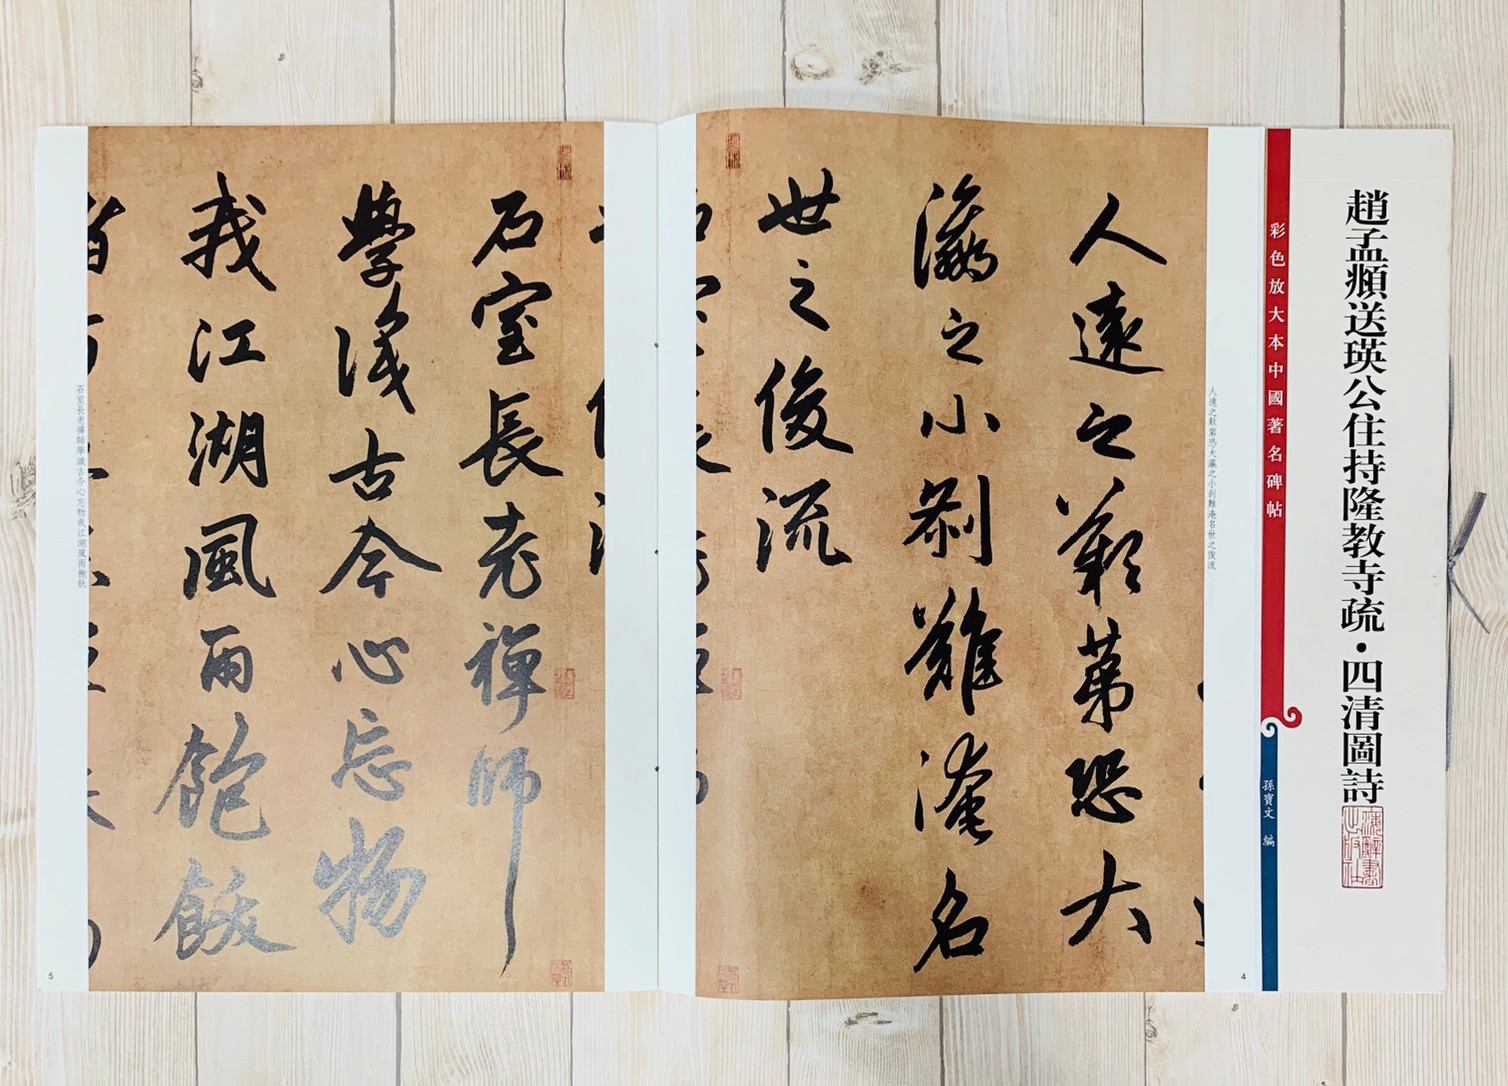 趙孟頫送瑛公住持隆教寺疏・四清圖詩
彩色放大本中國著名碑帖
孫寶文 編
人遠之歎第恐大
瀛之小刹難淹名
世之俊流
人遠之歎第恐大瀛之小刹難淹名世之俊流
4
石室長老禪師
學識古今心忘物
我江湖風雨飽飫
石室長老禪師學識古今心忘物我江湖風雨飽飫
5